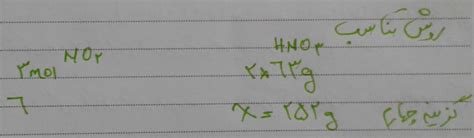 روش تناسب
NO₂ HNO₃
۳mol ۲×۶۳g
۶ x = ۲۵۲g گزینه چهارم